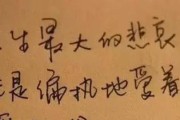 生最大的悲哀
是偏执地爱着